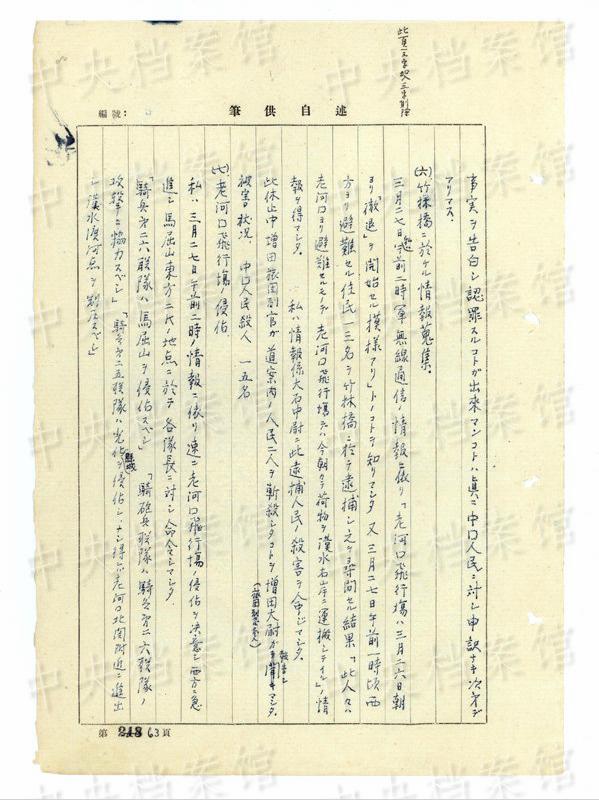 此頁一字改三字削除
編號：
筆供自述
事実ヲ告白シ認罪スルコトガ出來マシコトハ真ニ中口人民ニ対シ申訳ナキ次第デ
アリマス、
(六)、竹林橋ニ於ケル情報蒐集
三月二七日午前二時軍無線通信ノ情報ニ依リ「老河口飛行場ハ三月二六日朝
ヨリ撤退ヲ開始セル模様アリ」トノコトヲ知リマシタ 又三月二七日午前一時頃西
方ヨリ避難セル住民一三名ヲ竹林橋ニ於テ逮捕シ之ヲ尋問セル結果「此人々ハ
老河口ヨリ避難セルモノデ老河口飛行場デハ今朝カラ荷物ヲ漢水右岸ニ運搬シテイル」ノ情
報ヲ得マシタ、 私ハ情報係大石中尉ニ此逮捕人民ノ殺害ヲ命ジマシタ、
此休止中増田旅団副官ガ道案内ノ人民二人ヲ斬殺シタコトヲ増田大尉ガ報告シマシタ、
被害ノ状況、 中口人民殺人 一五名
(七)、老河口飛行場ノ侵佔
私ハ三月二七日午前二時ノ情報ニ依リ速ニ老河口飛行場ノ侵佔ヲ決意シ西方ニ急
進シ馬屈山東方二代ノ地点ニ於テ各隊長ニ対シ命令シマシタ、
「騎兵第二六聯隊ハ馬屈山ヲ侵佔スベシ」 「騎砲兵聯隊ハ騎兵第二六聯隊ノ
攻撃ニ協力スベシ」 「騎兵第二五聯隊ハ光化縣城ヲ侵佔シナシ得レバ老河口北関附近ニ進出
シ漢水渡河点ヲ制圧スベシ」
第 218 63 頁
中央档案馆